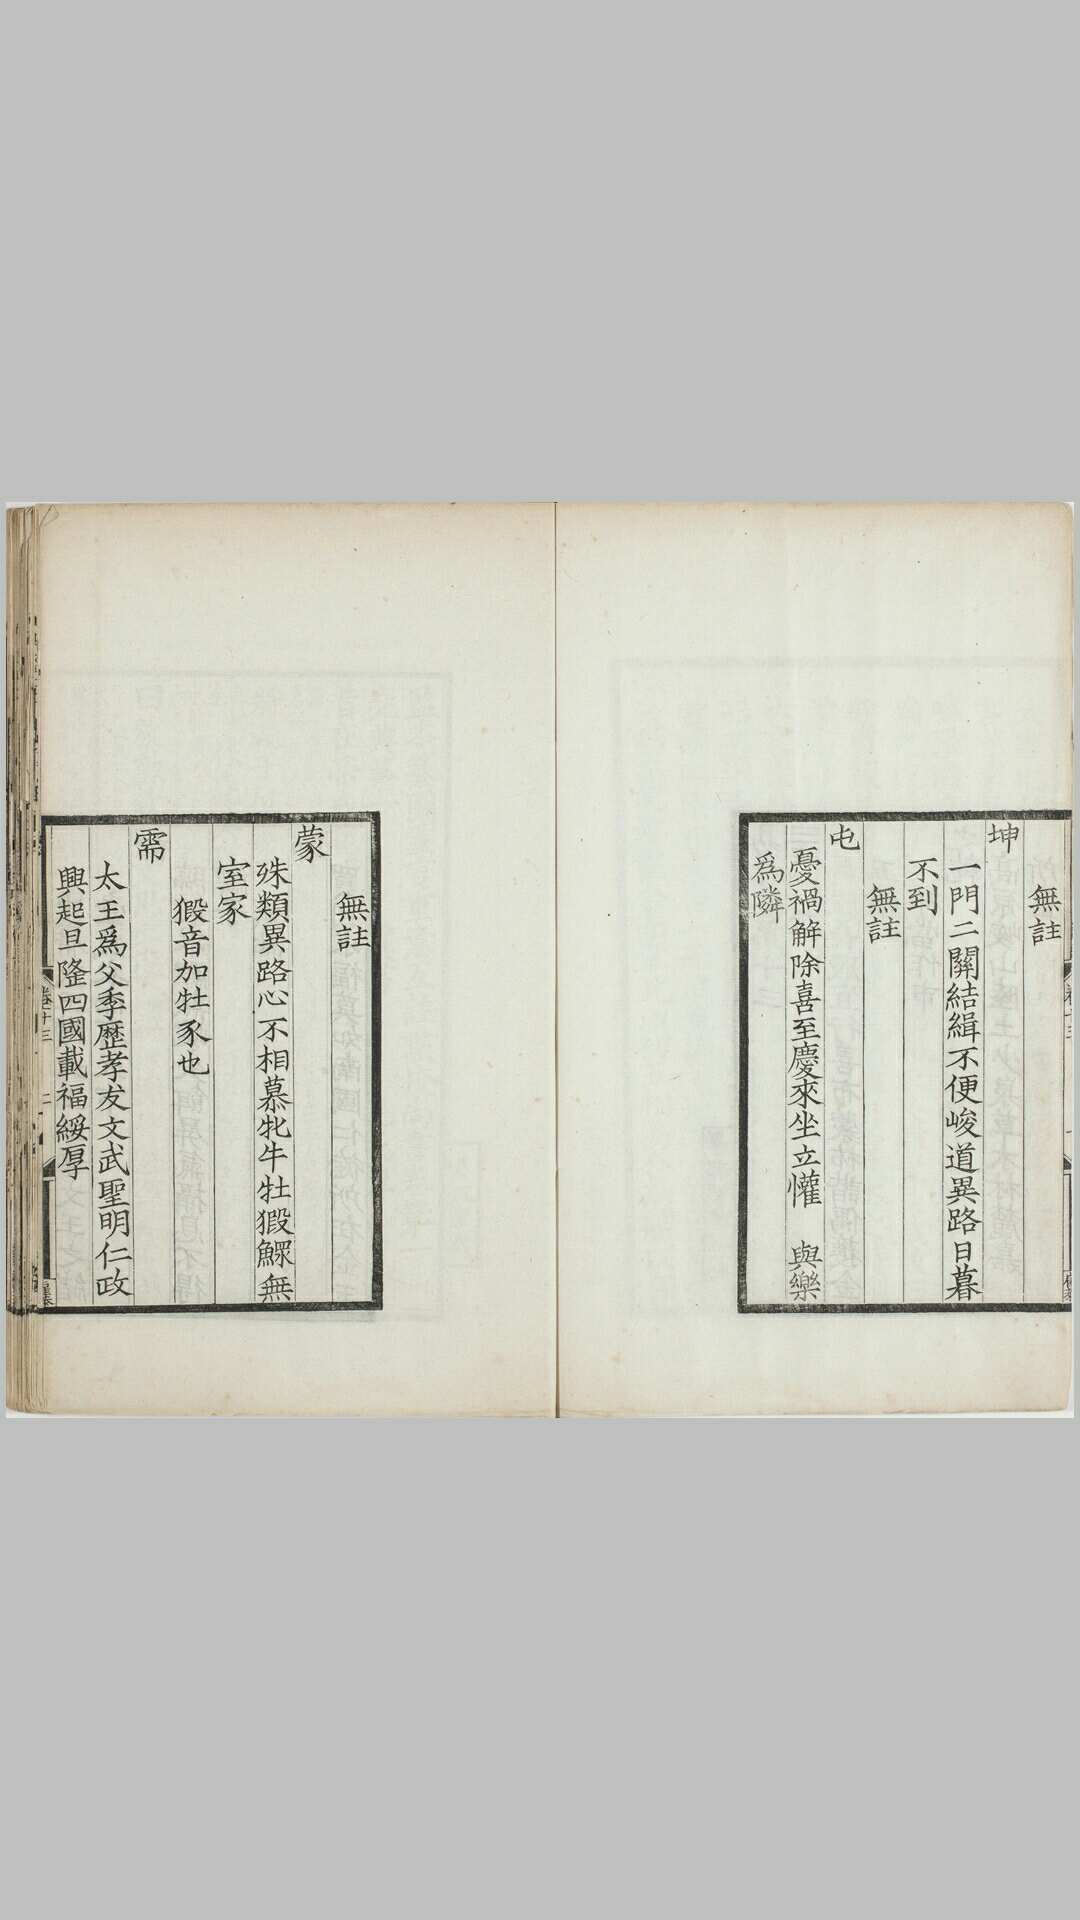 無註
坤
一門二關結緝不便峻道異路日暮
不到
無註
屯
憂禍解除喜至慶來坐立懽 與樂
爲隣
無註
蒙
殊類異路心不相慕牝牛牡猳鰥無
室家
猳音加牡豕也
需
太王爲父季歷孝友文武聖明仁政
興起旦隆四國載福綏厚
卷十三 二